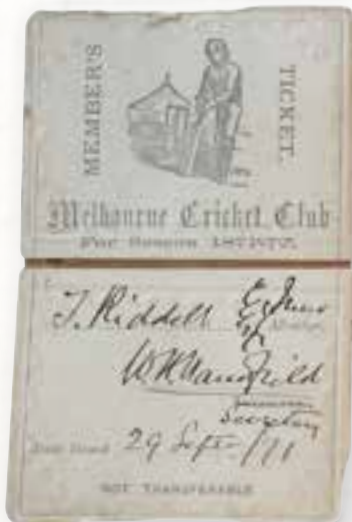 MEMBER'S
TICKET.
Melbourne Cricket Club
For Season
T. Riddell
Member
Secretary
Date Issued 29 Sept. /71
NOT TRANSFERABLE